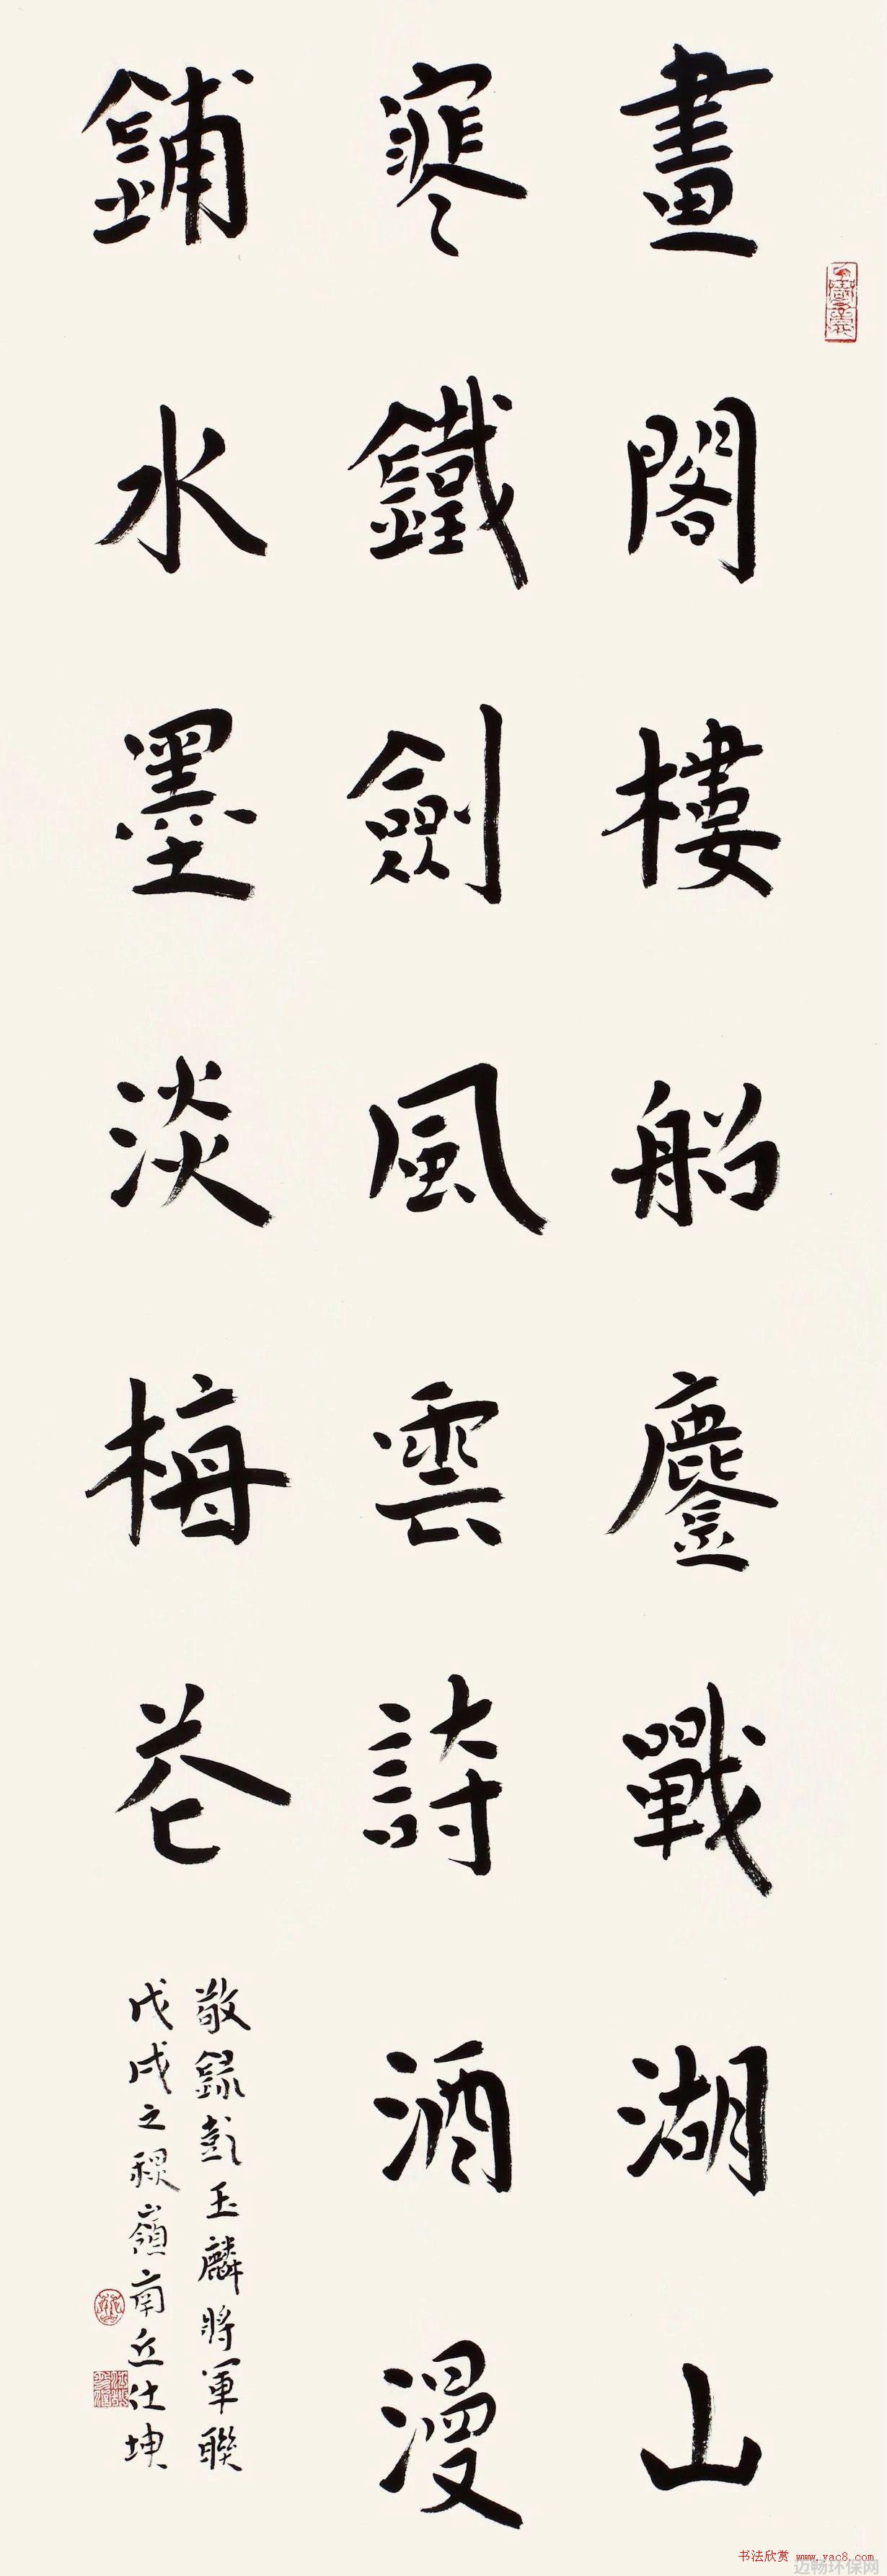 畫閣樓船鏖戰湖山
寒鐵劍風雲詩酒漫
鋪水墨淡梅花
敬錄彭玉麟將軍聯
戊戌之嶺南丘仕坤
书法欣赏 www.yac8.com
迈畅环保网